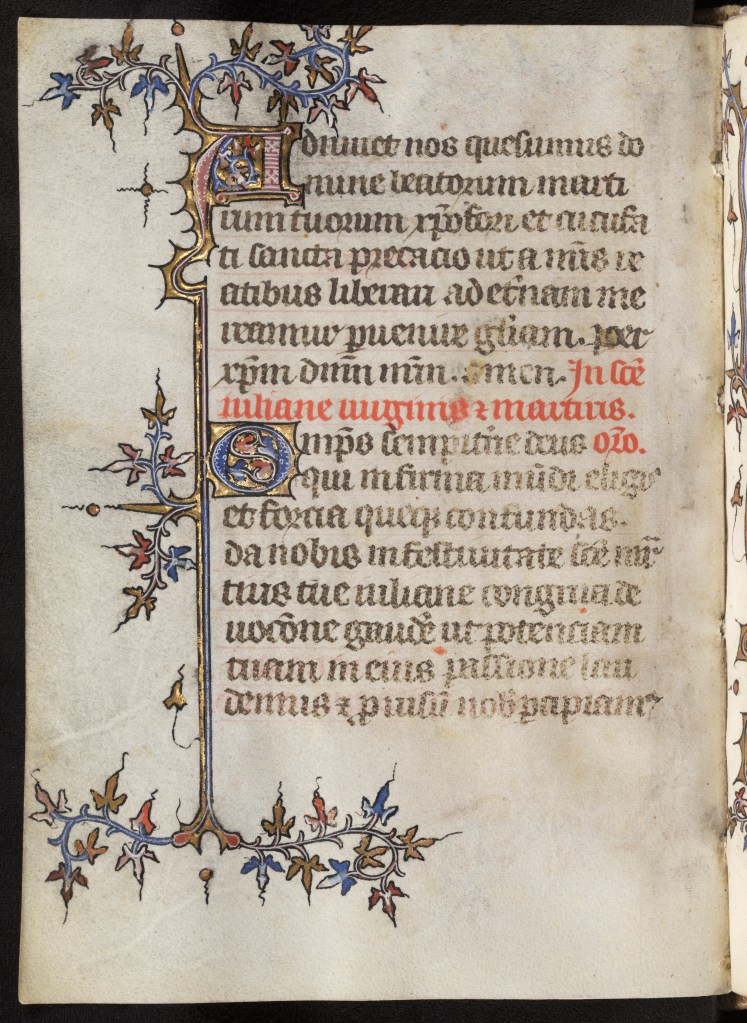 Adiuuet nos quesumus do
mine beatorum marti
rum tuorum xp̃ofori et cucufa
ti sancta precacio ut a nr̃is re
atibus liberati ad et̃nam me
reamur ꝑuenire gl̃iam. per
xp̃m dñm nr̃m. amen. In sc̃e
iuliane uirginis ⁊ martiris.
Omp̃s sempit̃ne deus or̃o.
qui infirma mũdi eligis
et forcia queqꝫ confundas.
da nobis in festiuitate sc̃e mr̃
tiris tue iuliane congrua de
uoc̃one gaude᷑ ut potenciam
tuam in eius passione lau
demus ⁊ ꝓuisũ nob̃ ꝑcipiam᷒